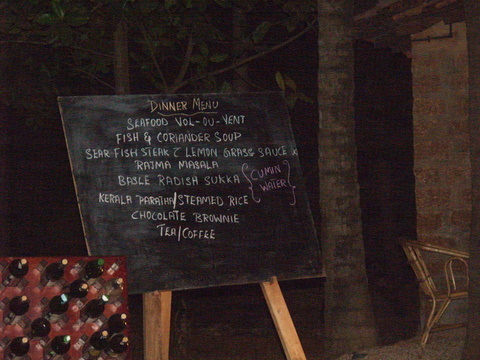 DINNER MENU
SEAFOOD VOL-OU-VENT
FISH & CORIANDER SOUP
SEAR FISH STEAK C LEMON GRASS SAUCE x
RAJMA MASALA
BABLE RADISH SUKKA {CUMIN WATER}
KERALA PARATHA/STEAMED RICE
CHOCOLATE BROWNIE
TEA/COFFEE